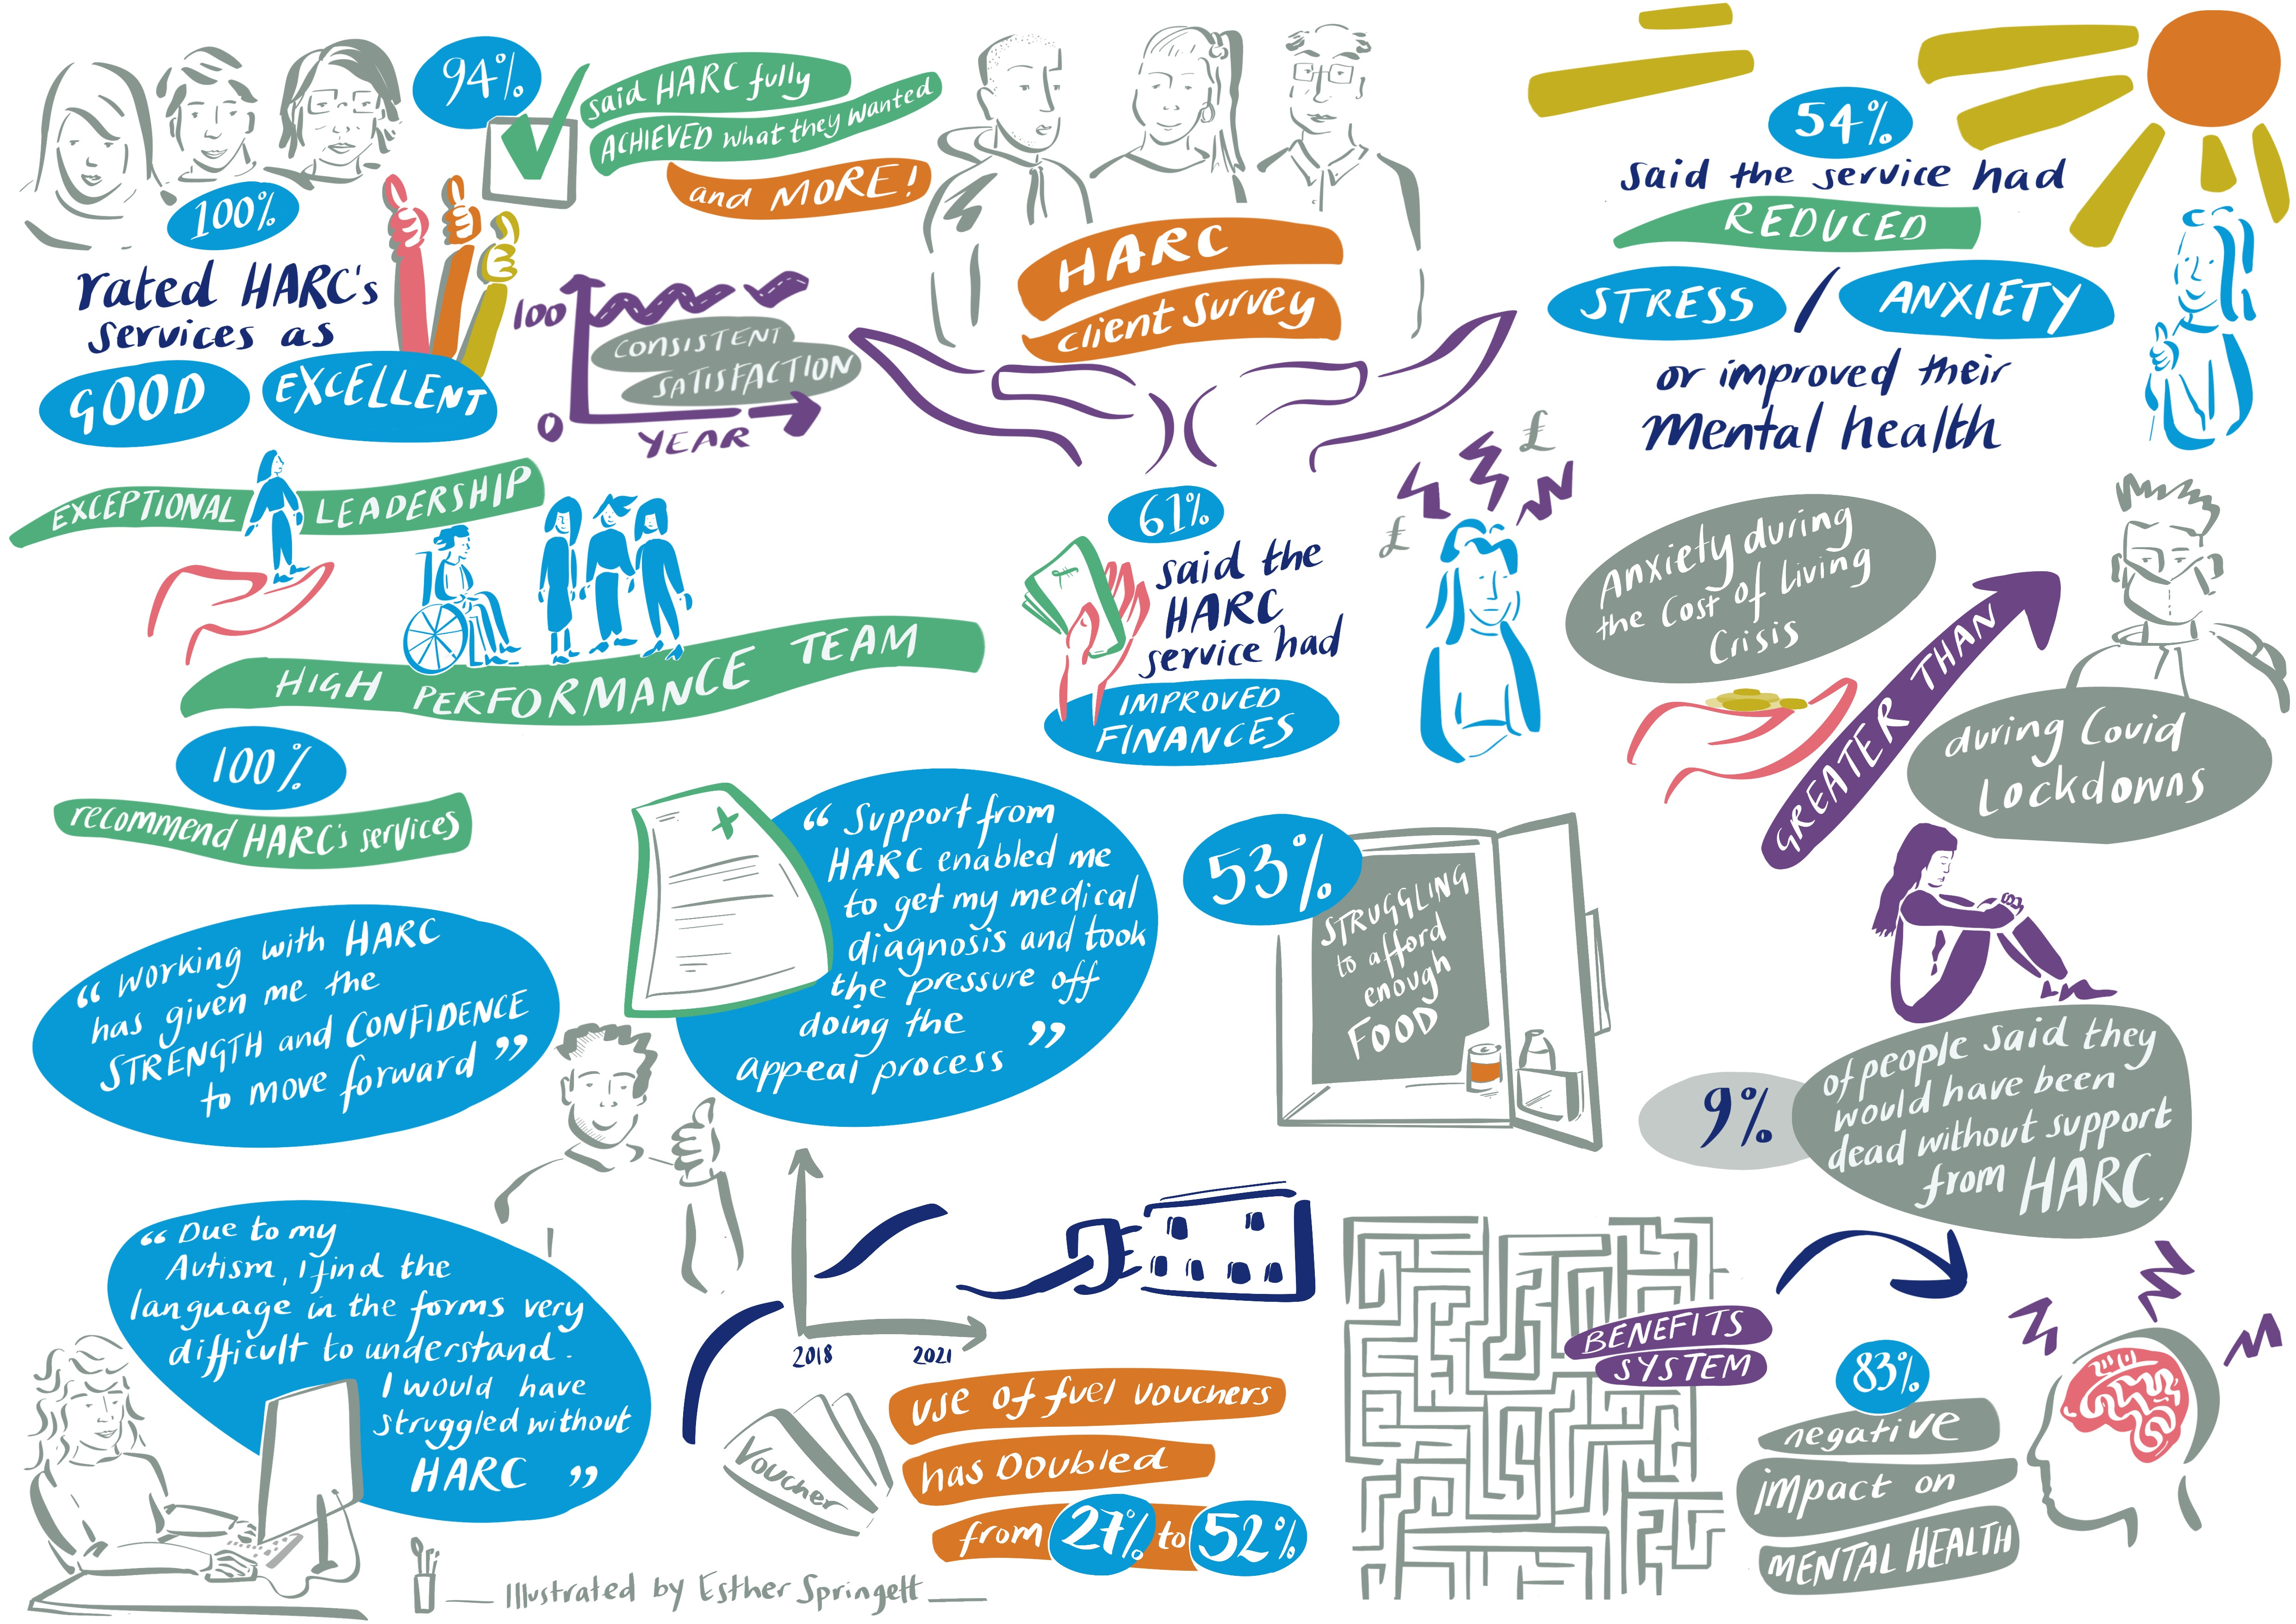 94%
said HARC fully
ACHIEVED what they wanted
and MORE!
100%
rated HARC's
services as
GOOD
EXCELLENT
100
CONSISTENT
SATISFACTION
0
YEAR
HARC
client survey
54%
said the service had
REDUCED
STRESS / ANXIETY
or improved their
Mental health
EXCEPTIONAL LEADERSHIP
HIGH PERFORMANCE TEAM
100%
recommend HARC's services
£
£
£
61%
said the
HARC
service had
IMPROVED
FINANCES
Anxiety during
the Cost of Living
Crisis
GREATER THAN
during Covid
Lockdowns
“ Working with HARC
has given me the
STRENGTH and CONFIDENCE
to move forward ”
“ Support from
HARC enabled me
to get my medical
diagnosis and took
the pressure off
doing the
appeal process ”
53%
STRUGGLING
to afford
enough
FOOD
9%
of people said they
would have been
dead without support
from HARC.
“ Due to my
Autism, I find the
language in the forms very
difficult to understand.
I would have
struggled without
HARC ”
2018
2021
Voucher
use of fuel vouchers
has Doubled
from 27% to 52%
BENEFITS
SYSTEM
83%
negative
impact on
MENTAL HEALTH
Illustrated by Esther Springett